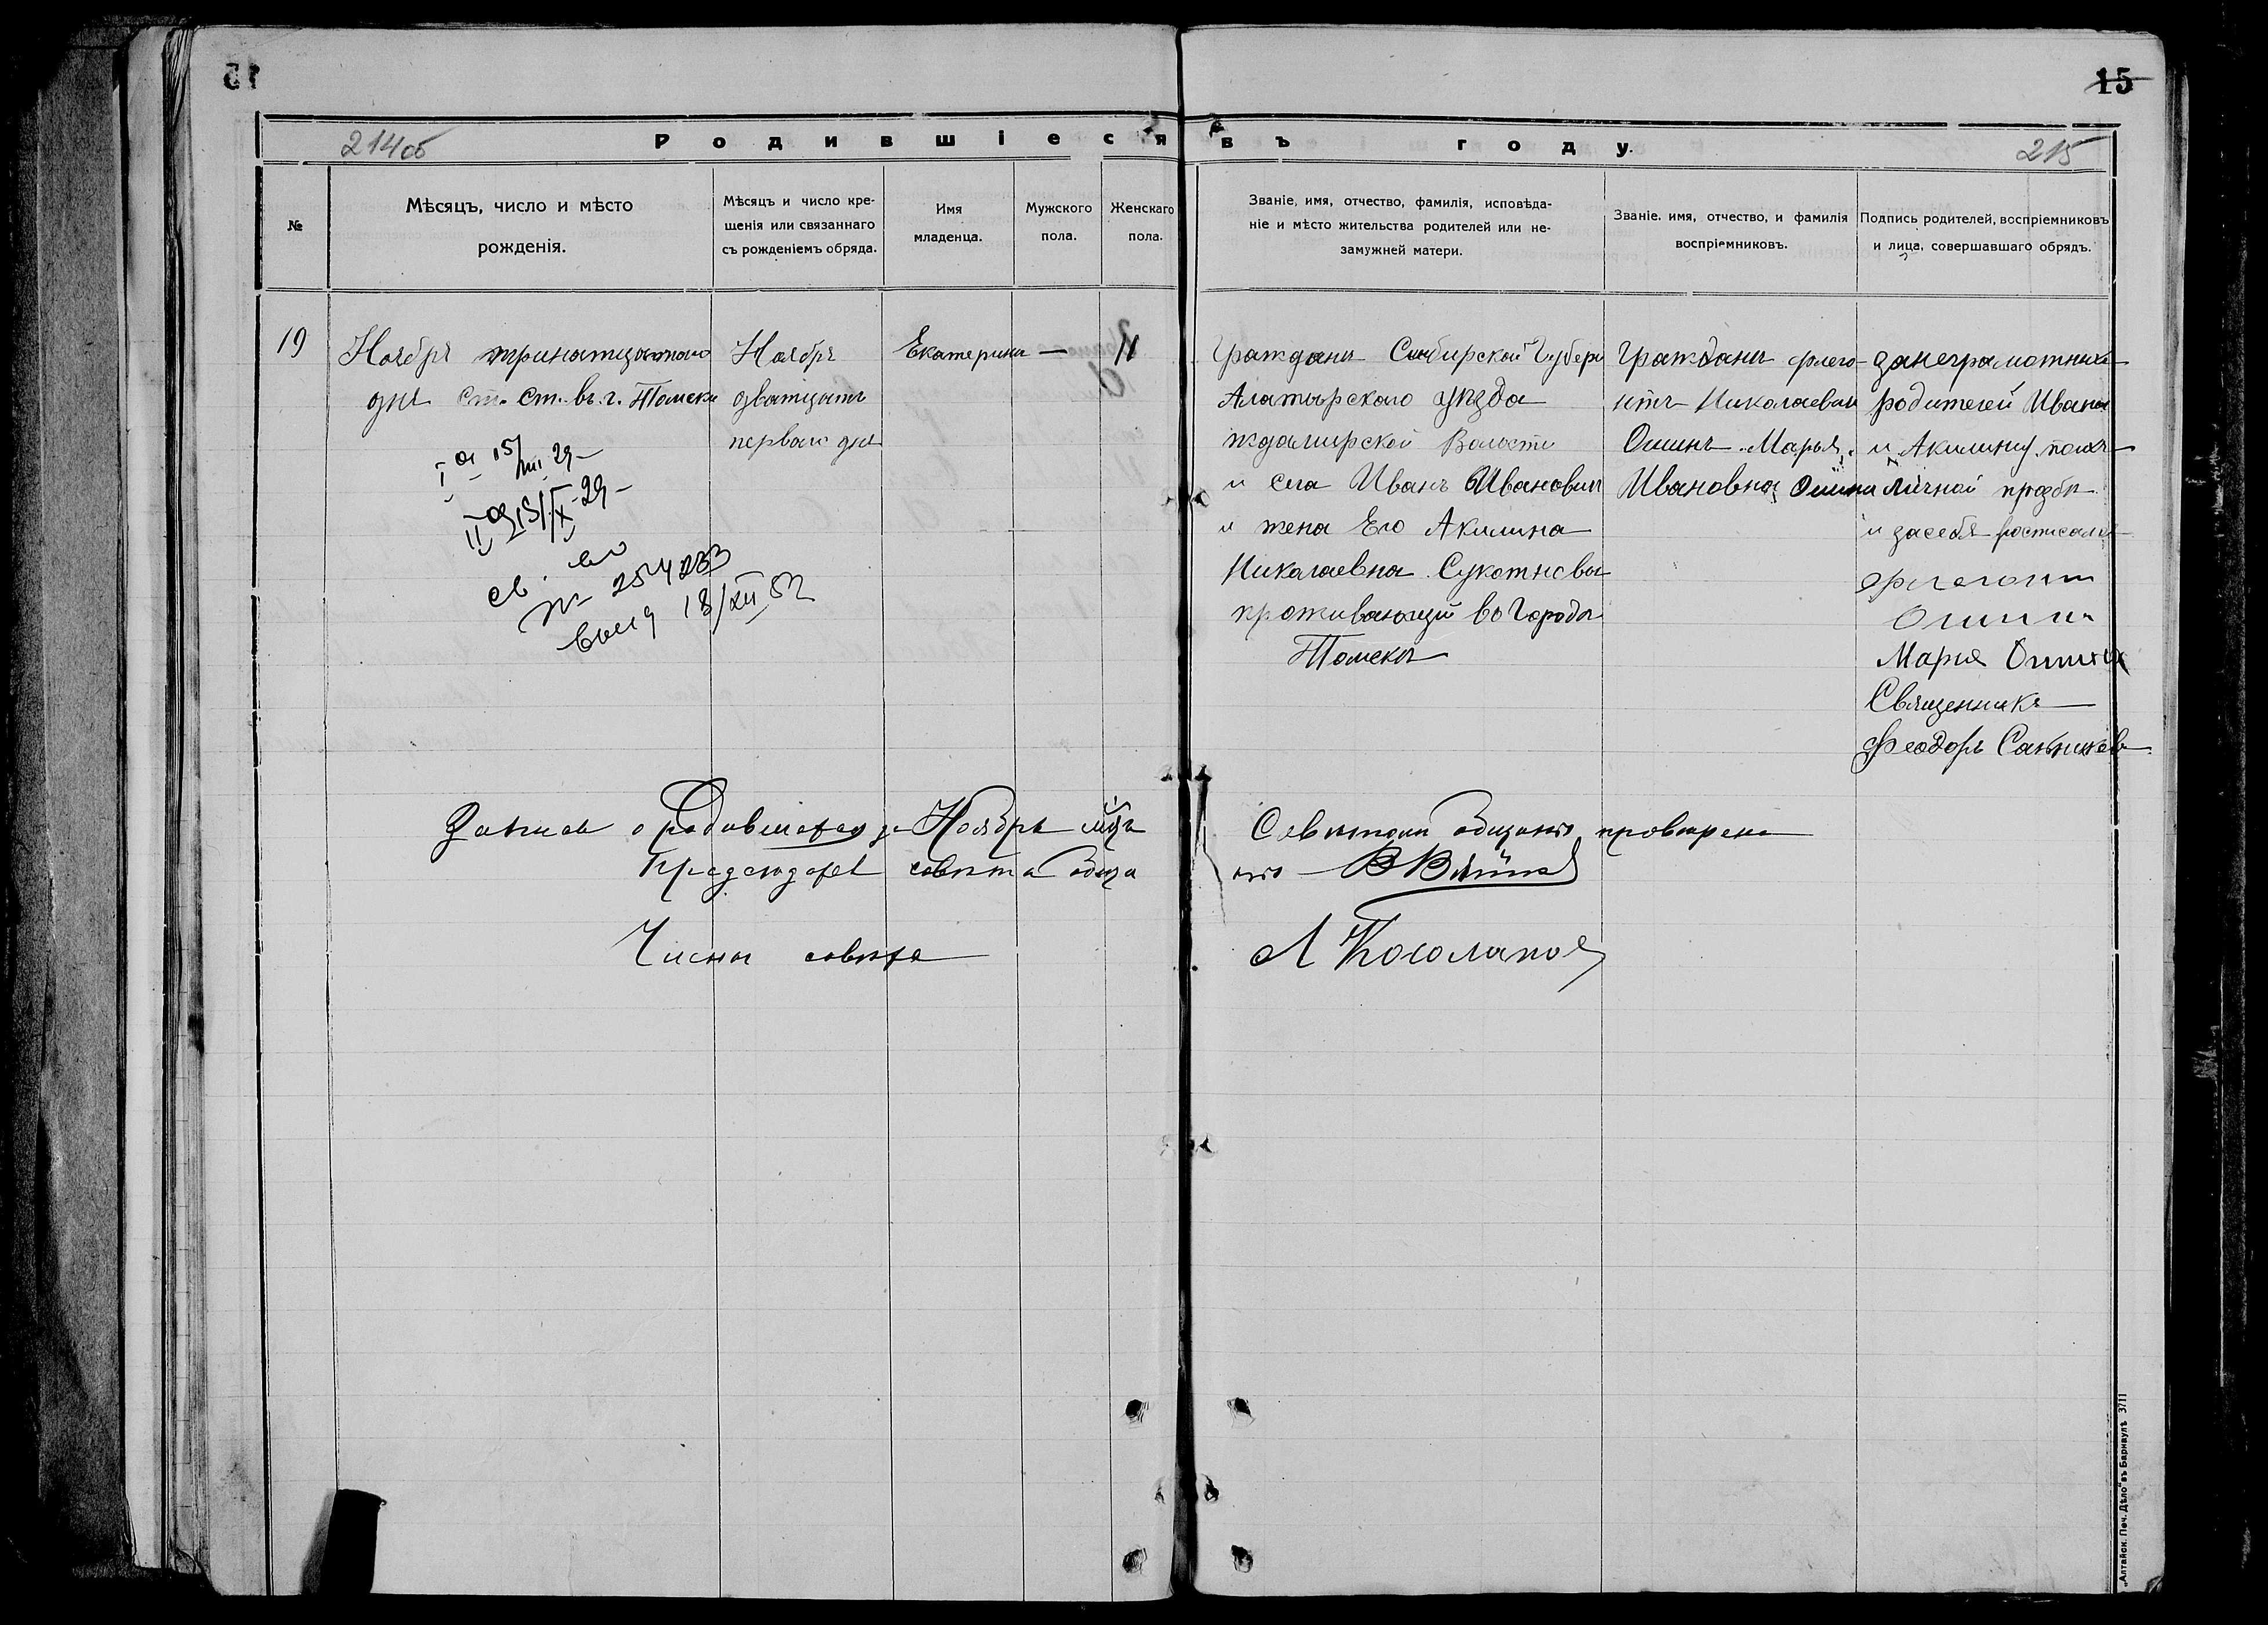 15
15
214об
Родившіеся въ году.
215
№
Мѣсяцъ, число и мѣсто
рожденія.
Мѣсяцъ и число кре-
щенія или связаннаго
съ рожденіемъ обряда.
Имя
младенца.
Мужского
пола.
Женскаго
пола.
Званіе, имя, отчество, фамилія, исповѣда-
ніе и мѣсто жительства родителей или не-
замужней матери.
Званіе, имя, отчество, и фамилія
воспріемниковъ.
Подпись родителей, воспріемниковъ
и лица, совершавшаго обрядъ.
19
Ноября тринатцатаго
дня ст. ст. въ г. Томске
Ноября
дватцать
перваго дня
Екатерина —
11
Граждани Симбирской Губерн
Алатырского уѣзда
ждамирской Волости
и села Иванъ Иванович
и жена Его Акилина
Николаевна Сукотновы
проживающий въ Городе
Томске
Граждани флего-
нтъ Николаевич
Ошинъ Марья
Ивановна Ошина
за неграмотных
родителей Ивана
и Акилину по их
личной прозбе
и засебя росписался
флегонт
Ошин
Мария Ошина
Священникъ
Феодоръ Санников
15/VIII 29
II 13/IX-29
св.
№ 254233
18/XII 52
Записи о родившихся за Ноябрь мцъ
Советом общины проверена
Председател совета общи
ны
Члены совета
Л Косолапов
„Алтайск. Печ. Дѣло“ въ Барнаулѣ 3711